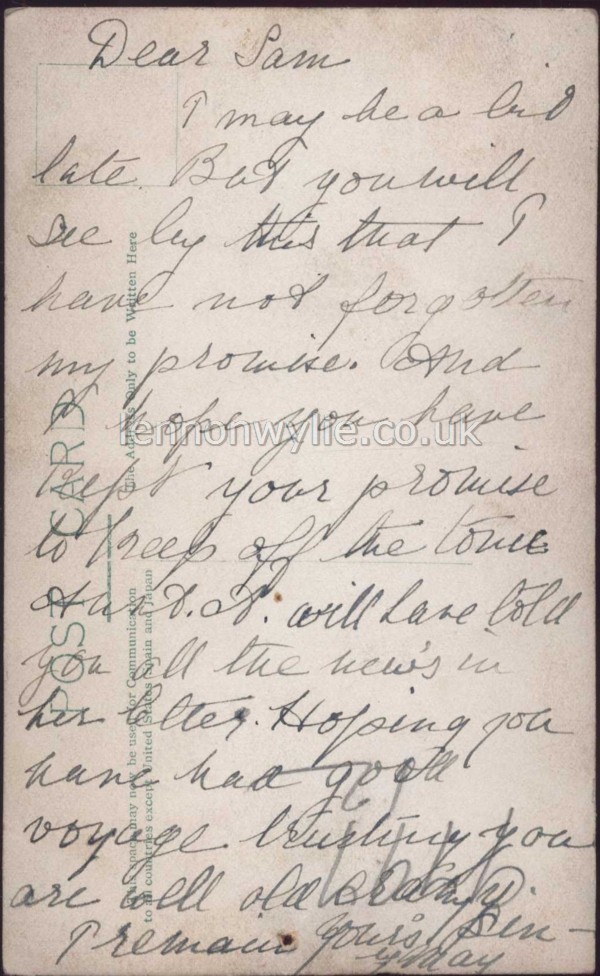 Dear Sam
I may be a bit
late. But you will
see by this that I
have not forgotten
my promise. And
I hope you have
kept your promise
to keep off the
Aunt. A. will have told
you all the new's in
her letter. Hoping you
have had good
voyage trusting you
are well old
I remain Yours
May
POST CARD
This space may not be used for Communication
to all countries except United States, Spain and Japan
The Address Only to be Written Here
lennonwylie.co.uk